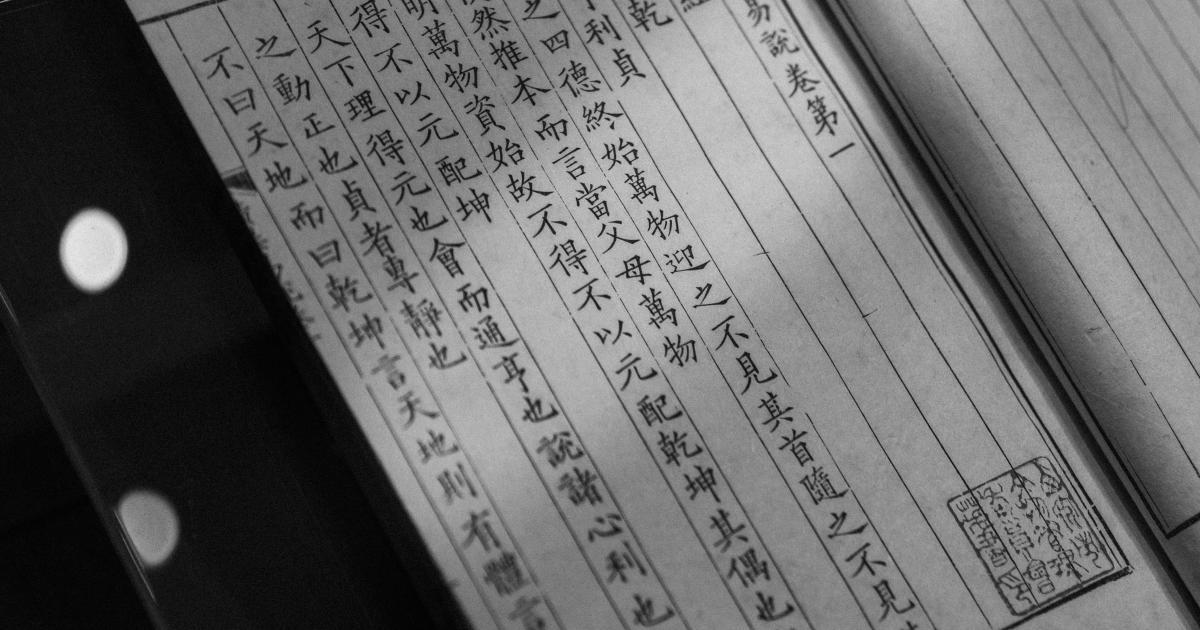 易說卷第一
乾
利貞
之四德終始萬物迎之不見其首隨之不見
然推本而言當父母萬物
明萬物資始故不得不以元配乾坤其偶也
得不以元配坤
天下理得元也會而通亨也說諸心利也
之動正也貞者專靜也
不曰天地而曰乾坤言天地則有體言